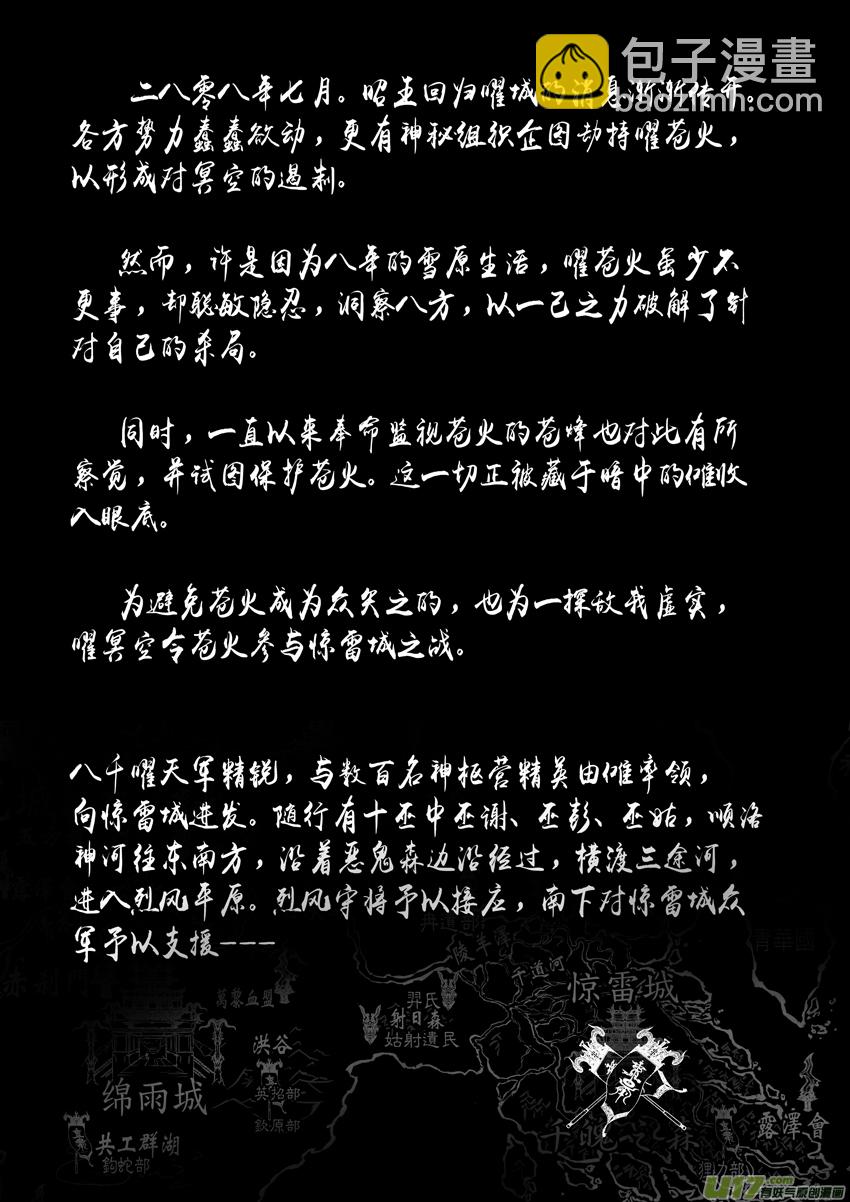 包子漫畫
baozimh.com
二八零八年七月。昭王回归曜城的消息渐渐传开。
各方势力蠢蠢欲动，更有神秘组织企图劫持曜苍火，
以形成对冥空的遏制。
然而，许是因为八年的雪原生活，曜苍火虽少不
更事，却聪敏隐忍，洞察八方，以一己之力破解了针
对自己的杀局。
同时，一直以来奉命监视苍火的苍峰也对此有所
察觉，并试图保护苍火。这一切正被藏于暗中的傩收
入眼底。
为避免苍火成为众矢之的，也为一探敌我虚实，
曜冥空令苍火参与惊雷城之战。
八千曜天军精锐，与数百名神枢营精英由傩率领，
向惊雷城进发。随行有十巫中巫谢、巫彭、巫姑，顺洛
神河往东南方，沿着恶鬼森边沿经过，横渡三途河，
进入烈风平原。烈风守将予以接应，南下对惊雷城众
军予以支援---
青華國
赤利門
萬黎血盟
千道河
羿氏
射日森
姑射遺民
惊雷城
洪谷
英招部
欽原部
绵雨城
共工群湖
鈎蛇部
露澤會
狸力部
U17.com
有妖气原创漫画